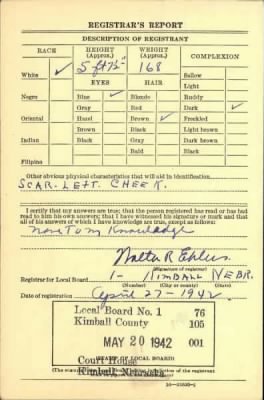 REGISTRAR'S REPORT
DESCRIPTION OF REGISTRANT
RACE HEIGHT (Approx.) WEIGHT (Approx.) COMPLEXION
White ✓ 5 ft 7½" 168 Sallow
EYES HAIR Light
Negro Blue ✓ Blonde Ruddy
Gray Red Dark ✓
Oriental Hazel Brown ✓ Freckled
Brown Black Light brown
Indian Black Gray Dark brown
Bald Black
Filipino
Other obvious physical characteristics that will aid in identification
SCAR. LEFT. CHEEK.
I certify that my answers are true; that the person registered has read or has had
read to him his own answers; that I have witnessed his signature or mark and that
all of his answers of which I have knowledge are true, except as follows:
None To my Knowledge
Walter R Ehlers
(Signature of registrar)
Registrar for Local Board 1- KIMBALL NEBR.
(Number) (City or county) (State)
Date of registration April 27-1942
Local Board No. 1 76
Kimball County 105
MAY 20 1942 001
(STAMP OF LOCAL BOARD)
Court House
Kimball, Nebraska